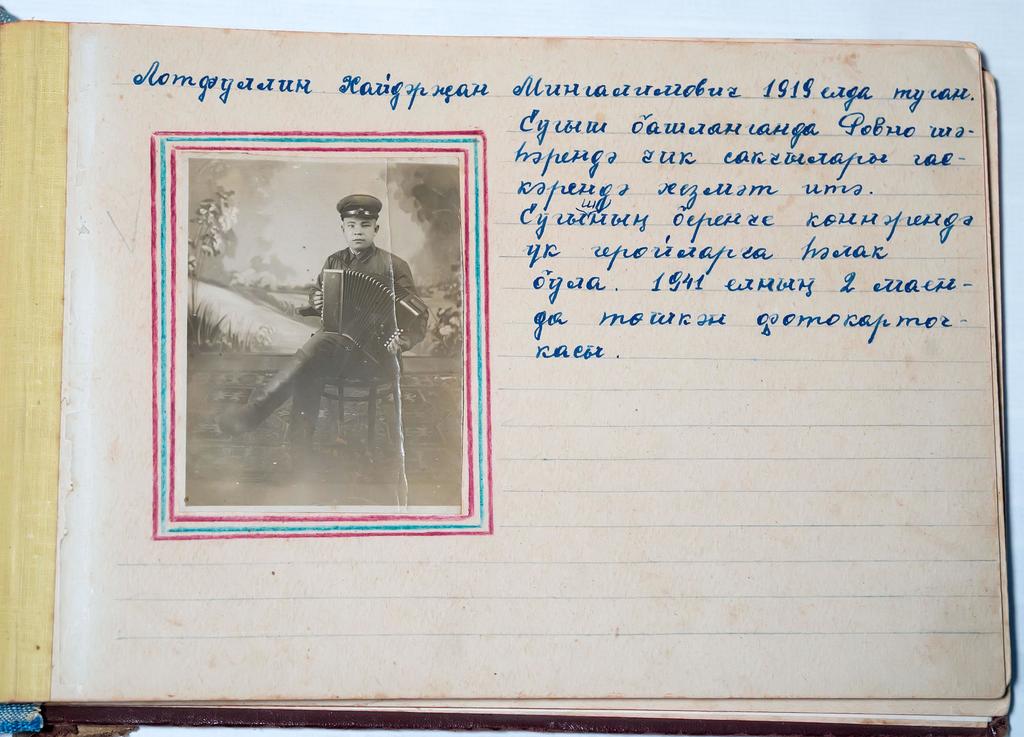 Лотфуллин Хайдәрҗан Мингалимович 1919 елда туган.
Сугыш башланганда Ровно шә-
һәрендә чик сакчылары гас-
кәрендә хезмәт итә.
Сугышның беренче көннәрендә
ук геройларча һәлак
була. 1941 елның 2 маен-
да төшкән фотокарточ-
касы.